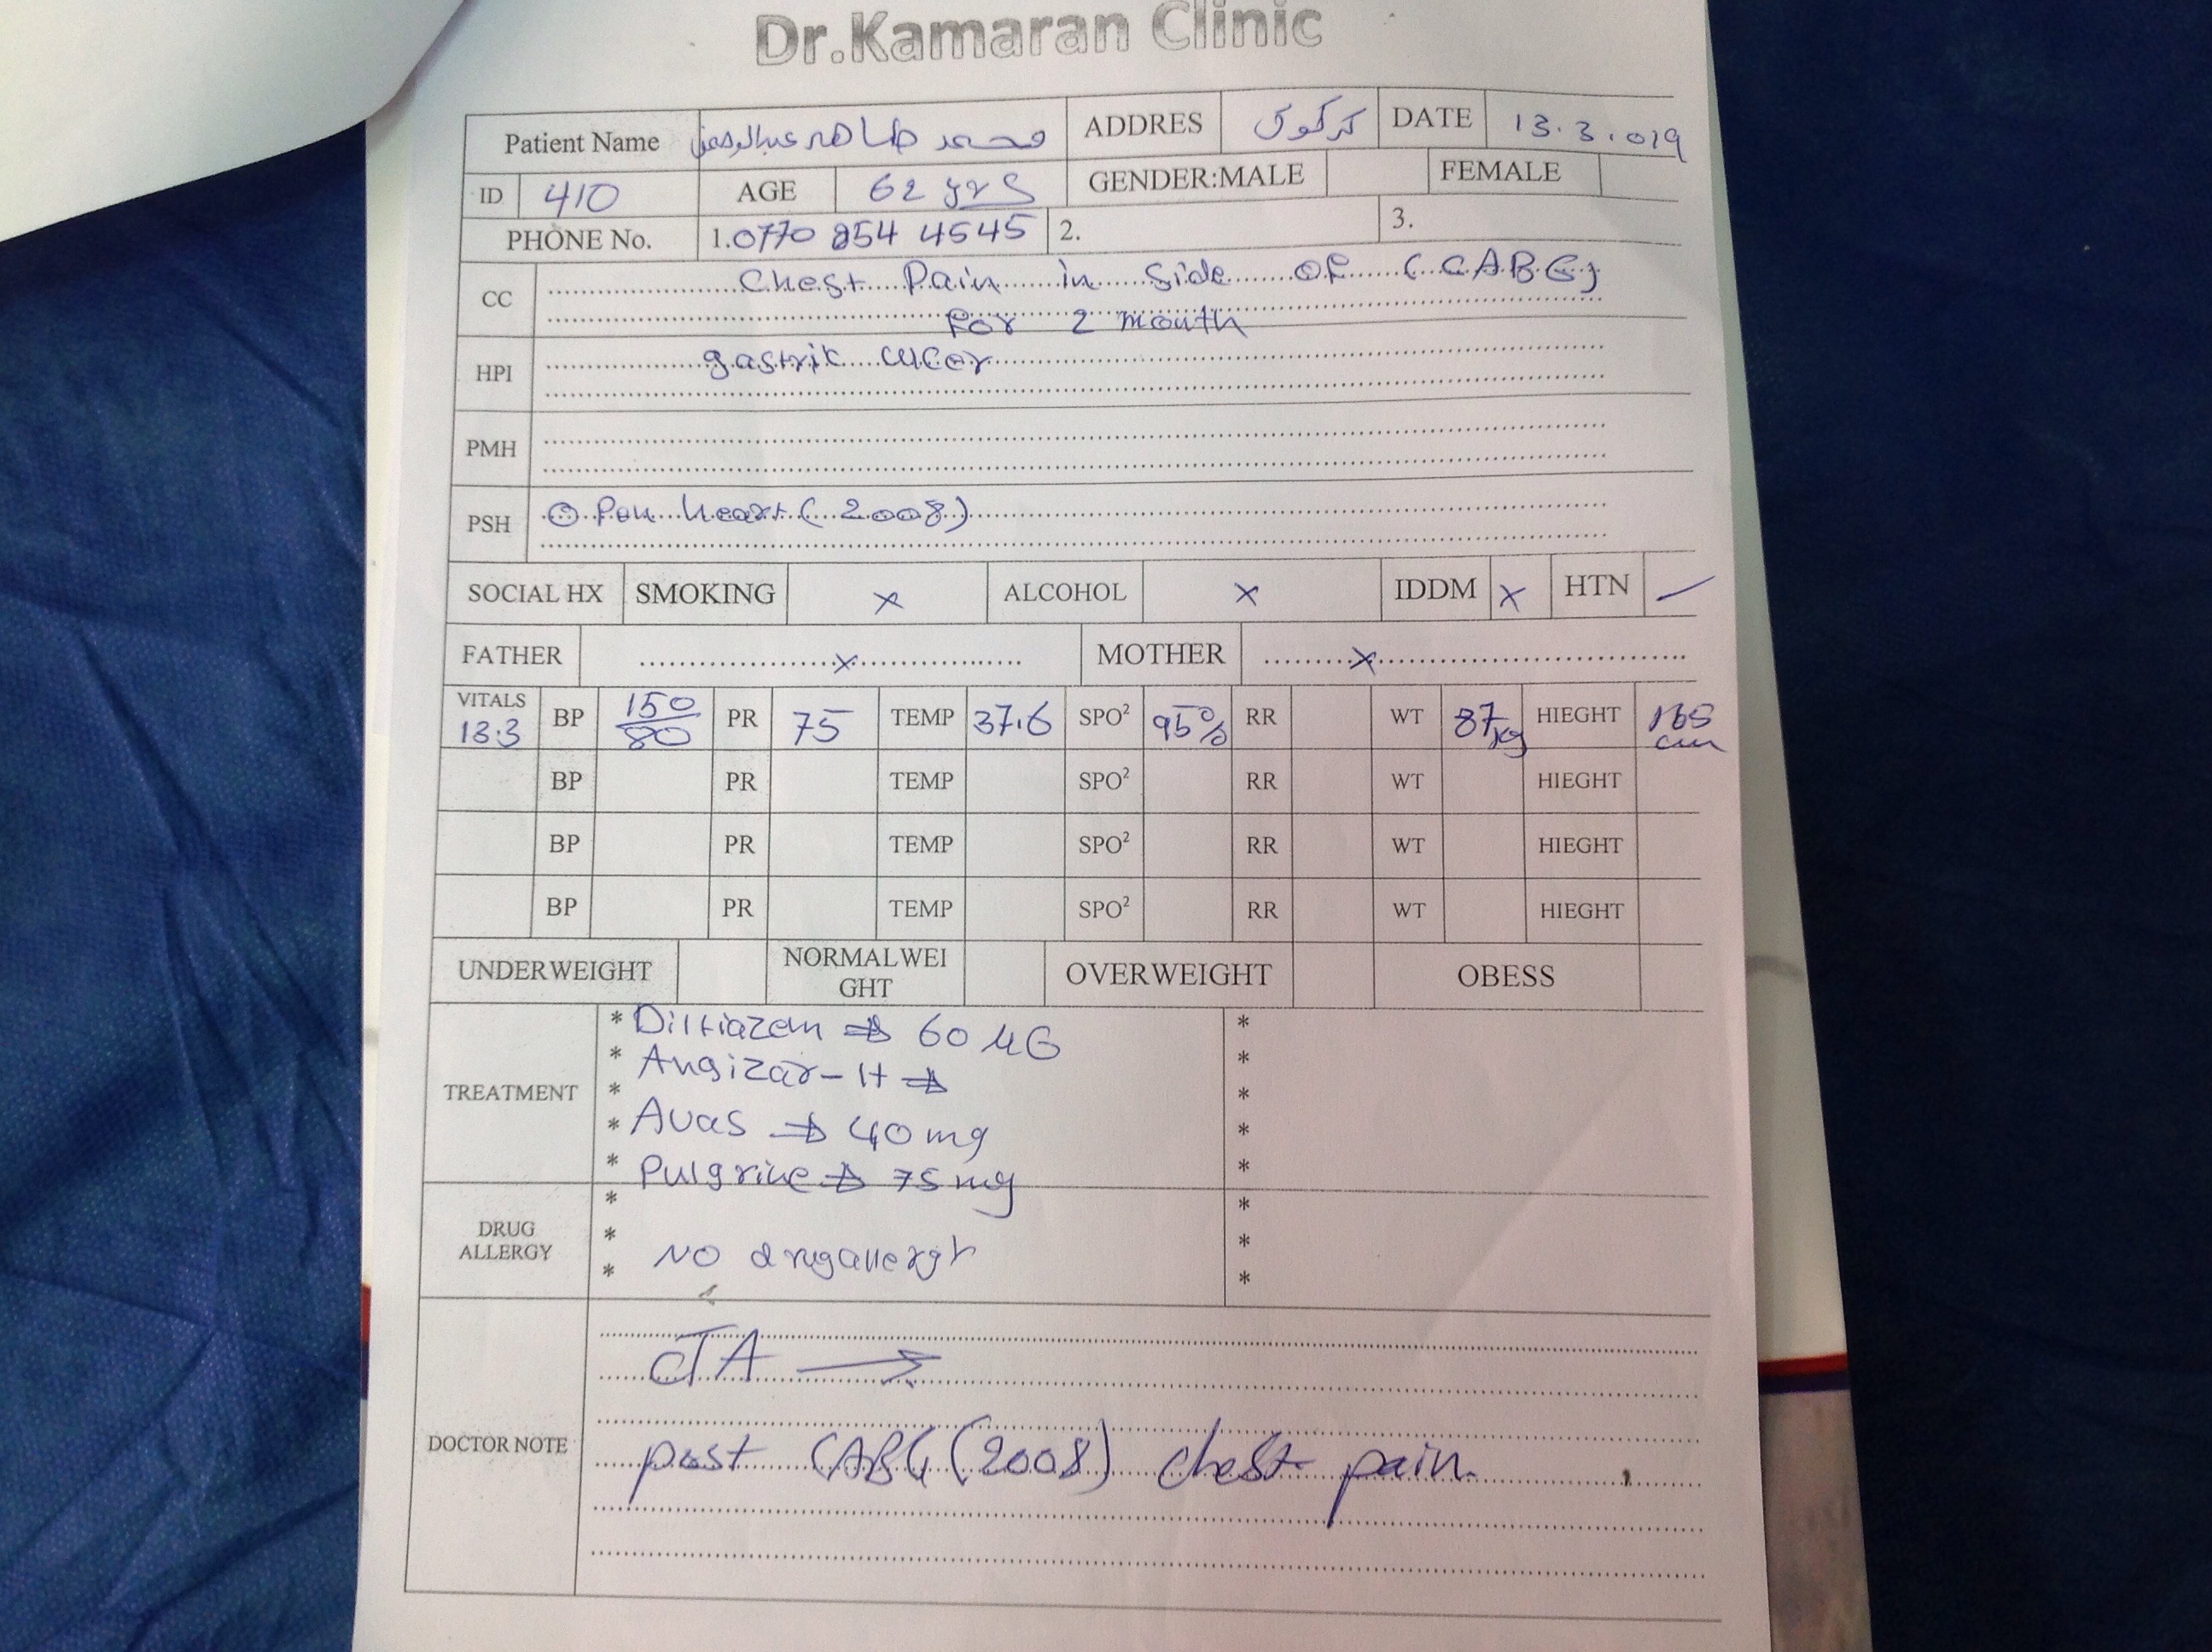 Dr.Kamaran Clinic
Patient Name محمد طاهر عبدالرحمن ADDRES كركوك DATE 13.3.019
ID 410 AGE 62 yrs GENDER:MALE FEMALE
PHONE No. 1.0770 854 4545 2. 3.
CC Chest Pain in Side OF (CABG)
For 2 mouth
HPI gastric ulcer
PMH
PSH Open heart (2008)
SOCIAL HX SMOKING × ALCOHOL × IDDM × HTN ✓
FATHER × MOTHER ×
VITALS 13.3 BP 150/80 PR 75 TEMP 37.6 SPO² 95% RR WT 87kg HIEGHT 165 cm
BP PR TEMP SPO² RR WT HIEGHT
BP PR TEMP SPO² RR WT HIEGHT
BP PR TEMP SPO² RR WT HIEGHT
UNDERWEIGHT NORMALWEI GHT OVERWEIGHT OBESS
TREATMENT
* Diltiazem → 60 MG *
* Angizar-H → *
* Avas → 40 mg *
* Pulgrine → 75 mg *
DRUG ALLERGY
No drugallergy
DOCTOR NOTE
CTA →
post CABG (2008) chest pain.